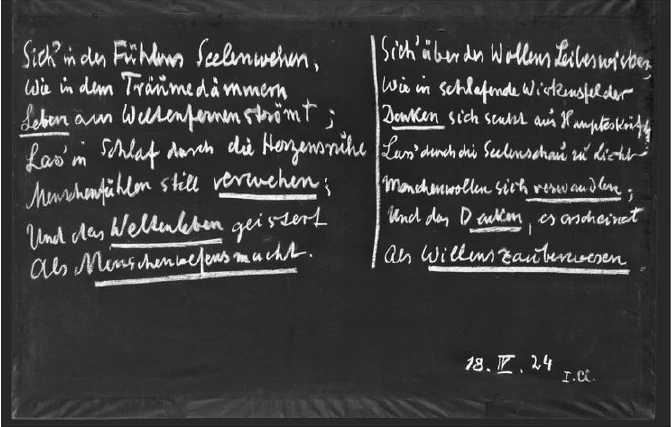 Sieh' in des Fühlens Seelenwehen,
Wie in dem Träumedämmern
Leben aus Weltenfernen strömt;
Lass' in Schlaf durch die Herzensruhe
Menschenfühlen still verwehen;
Und das Weltenleben geistert
Als Menschenwesensmacht.
Sieh' über des Wollens Leibeswirken,
Wie in schlafende Wirkensfelder
Denken sich senkt aus Haupteskräften;
Lass' durch die Seelenschau zu Licht
Menschenwollen sich verwandlen;
Und das Denken, es erscheinet
Als Willenszauberwesen
18. IV. 24
I. Cl.